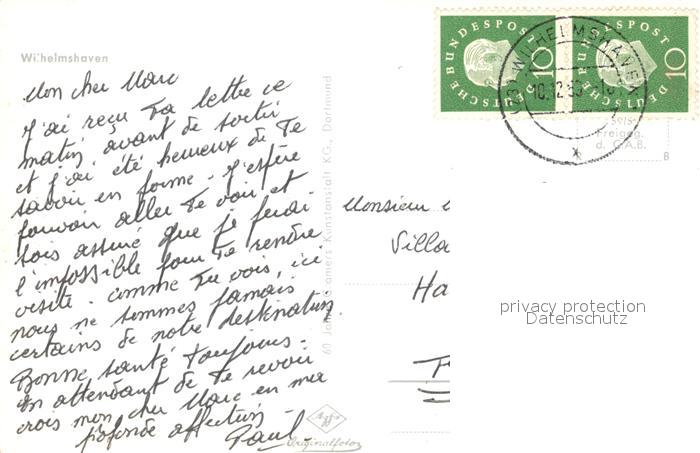 Wilhelmshaven
Mon cher Marc
J'ai reçu ta lettre ce
matin avant de sortir
et j'ai été heureux de te
savoir en forme. J'espère
pouvoir aller te voir et
sois assuré que je ferai
l'impossible pour te rendre
visite. comme tu vois, ici
nous ne sommes jamais
certains de notre destination.
Bonne santé toujours.
En attendant de te revoir
crois mon cher Marc en ma
profonde affection
Paul
60 Jahre Cramers Kunstanstalt KG., Dortmund
Agfa
Originalfoto
DEUTSCHE BUNDESPOST
10
DEUTSCHE BUNDESPOST
10
WILHELMSHAVEN
10.12.
Freigeg.
d. G.A.B.
B
Monsieur
Villa
Ha
privacy protection
Datenschutz